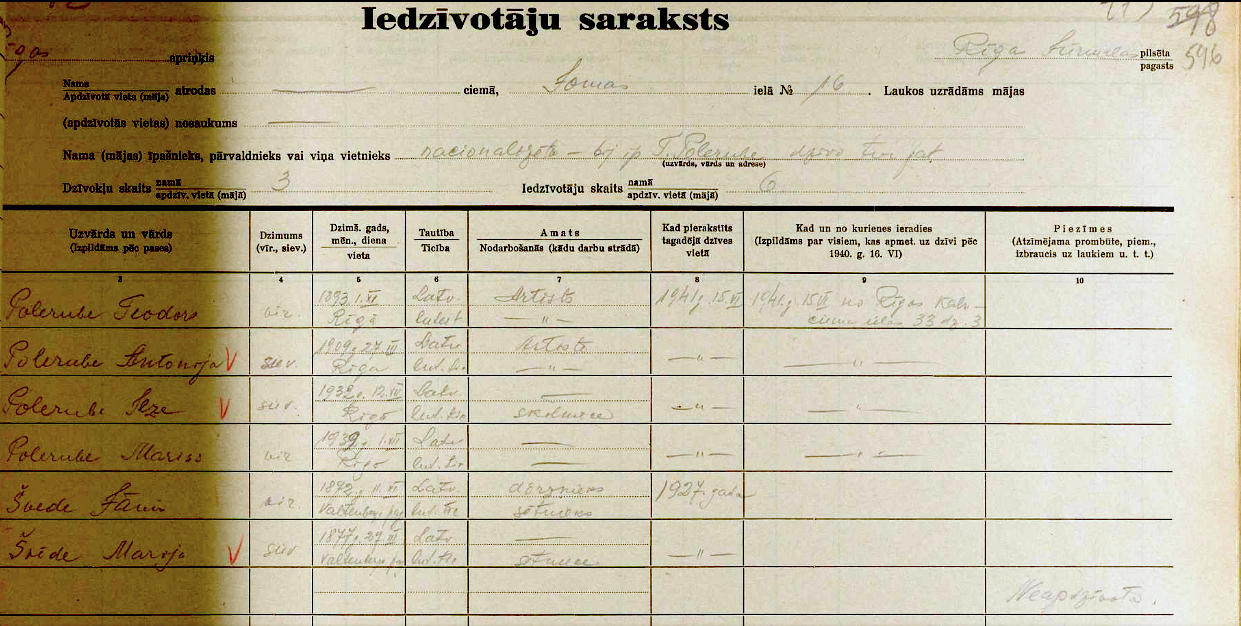 Iedzīvotāju saraksts
598
596
apriņķis
Rīgas Jūrmalas pilsēta
pagasts
Nama
Apdzīvotā vieta (māja) atrodas — ciemā, Somas ielā № 16. Laukos uzrādāms mājas
(apdzīvotās vietas) nosaukums —
Nama (mājas) īpašnieks, pārvaldnieks vai viņa vietnieks nacionalizēts – bij. īp. T. Polerube dzīvo turpat
(uzvārds, vārds un adrese)
Dzīvokļu skaits namā 3 Iedzīvotāju skaits namā 6
apdzīv. vietā (mājā) apdzīv. vietā (mājā)
Uzvārds un vārds
(Izpildāms pēc pases)
Dzimums
(vīr., siev.)
Dzimš. gads,
mēn., diena
vieta
Tautība
Ticība
Amats
Nodarbošanās (kādu darbu strādā)
Kad pierakstīts
tagadējā dzīves
vietā
Kad un no kurienes ieradies
(Izpildāms par visiem, kas apmet. uz dzīvi pēc
1940. g. 16. VI)
Piezīmes
(Atzīmējama prombūte, piem.,
izbraucis uz laukiem u. t. t.)
3 4 5 6 7 8 9 10
Polerube Teodors vīr. 1893 1. XI Latv. Artists 1941 g. 15. VI 1941. g. 15 VI no Rīgas Kaln-
Rīgā luter. — " — ciema ielas 33 dz. 3
Polerube Antonija V siev. 1909. 27. III Latv. Artists — " — — " —
Rīga lut. tic. — " —
Polerube Ilze V siev. 1932. 12. VI Latv. — — " — — " —
Rīgā lut. tic. skolniece
Polerube Mariss vīr. 1939. 1. VII Latv. — — " — — " —
Rīgā lut. tic. —
Švede Jānis vīr. 1892. 11. VI Latv. dārznieks 1927. gadā
Valtenberģu pag. lut. tic. sētnieks
Švēde Marija V siev. 1877. 27. III Latv. — — " —
Valtenberģu pag. lut. tic. sētniece
Neapdzīvots.